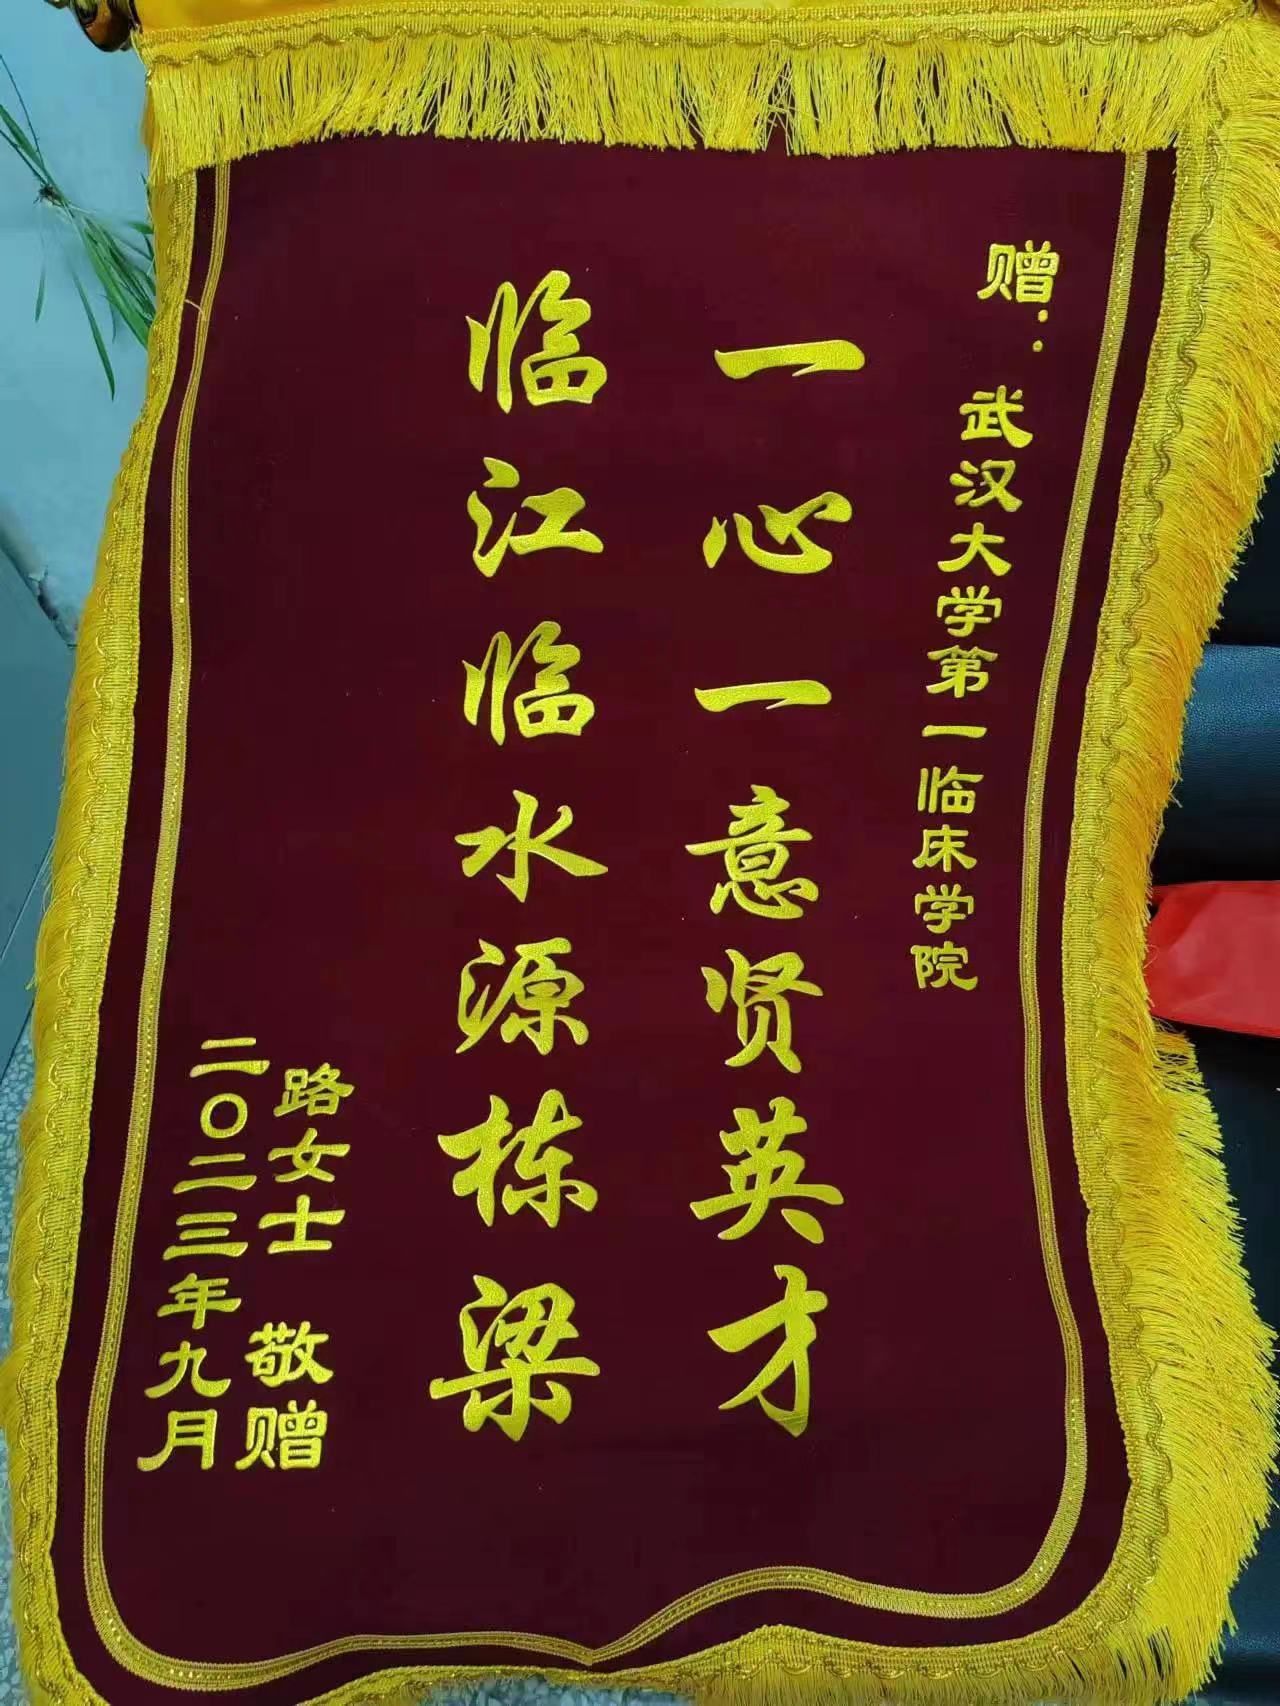 赠：武汉大学第一临床学院
一心一意贤英才
临江临水源栋梁
路女士 敬赠
二〇二三年九月